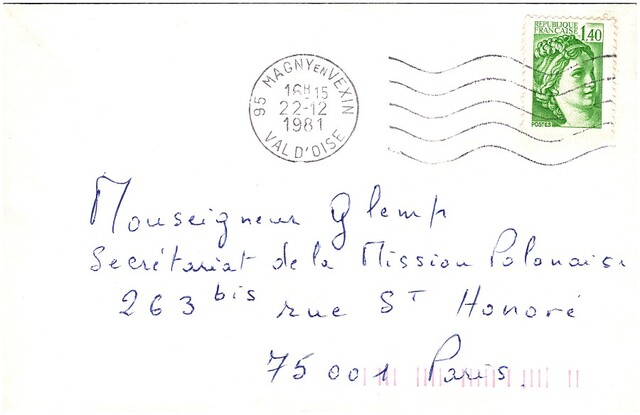 RÉPUBLIQUE
FRANÇAISE 1,40
POSTES
95 MAGNY EN VEXIN
16H15
22-12
1981
VAL D'OISE
Monseigneur Glemp
Secrétariat de la Mission Polonaise
263 bis rue St Honoré
75001 Paris.